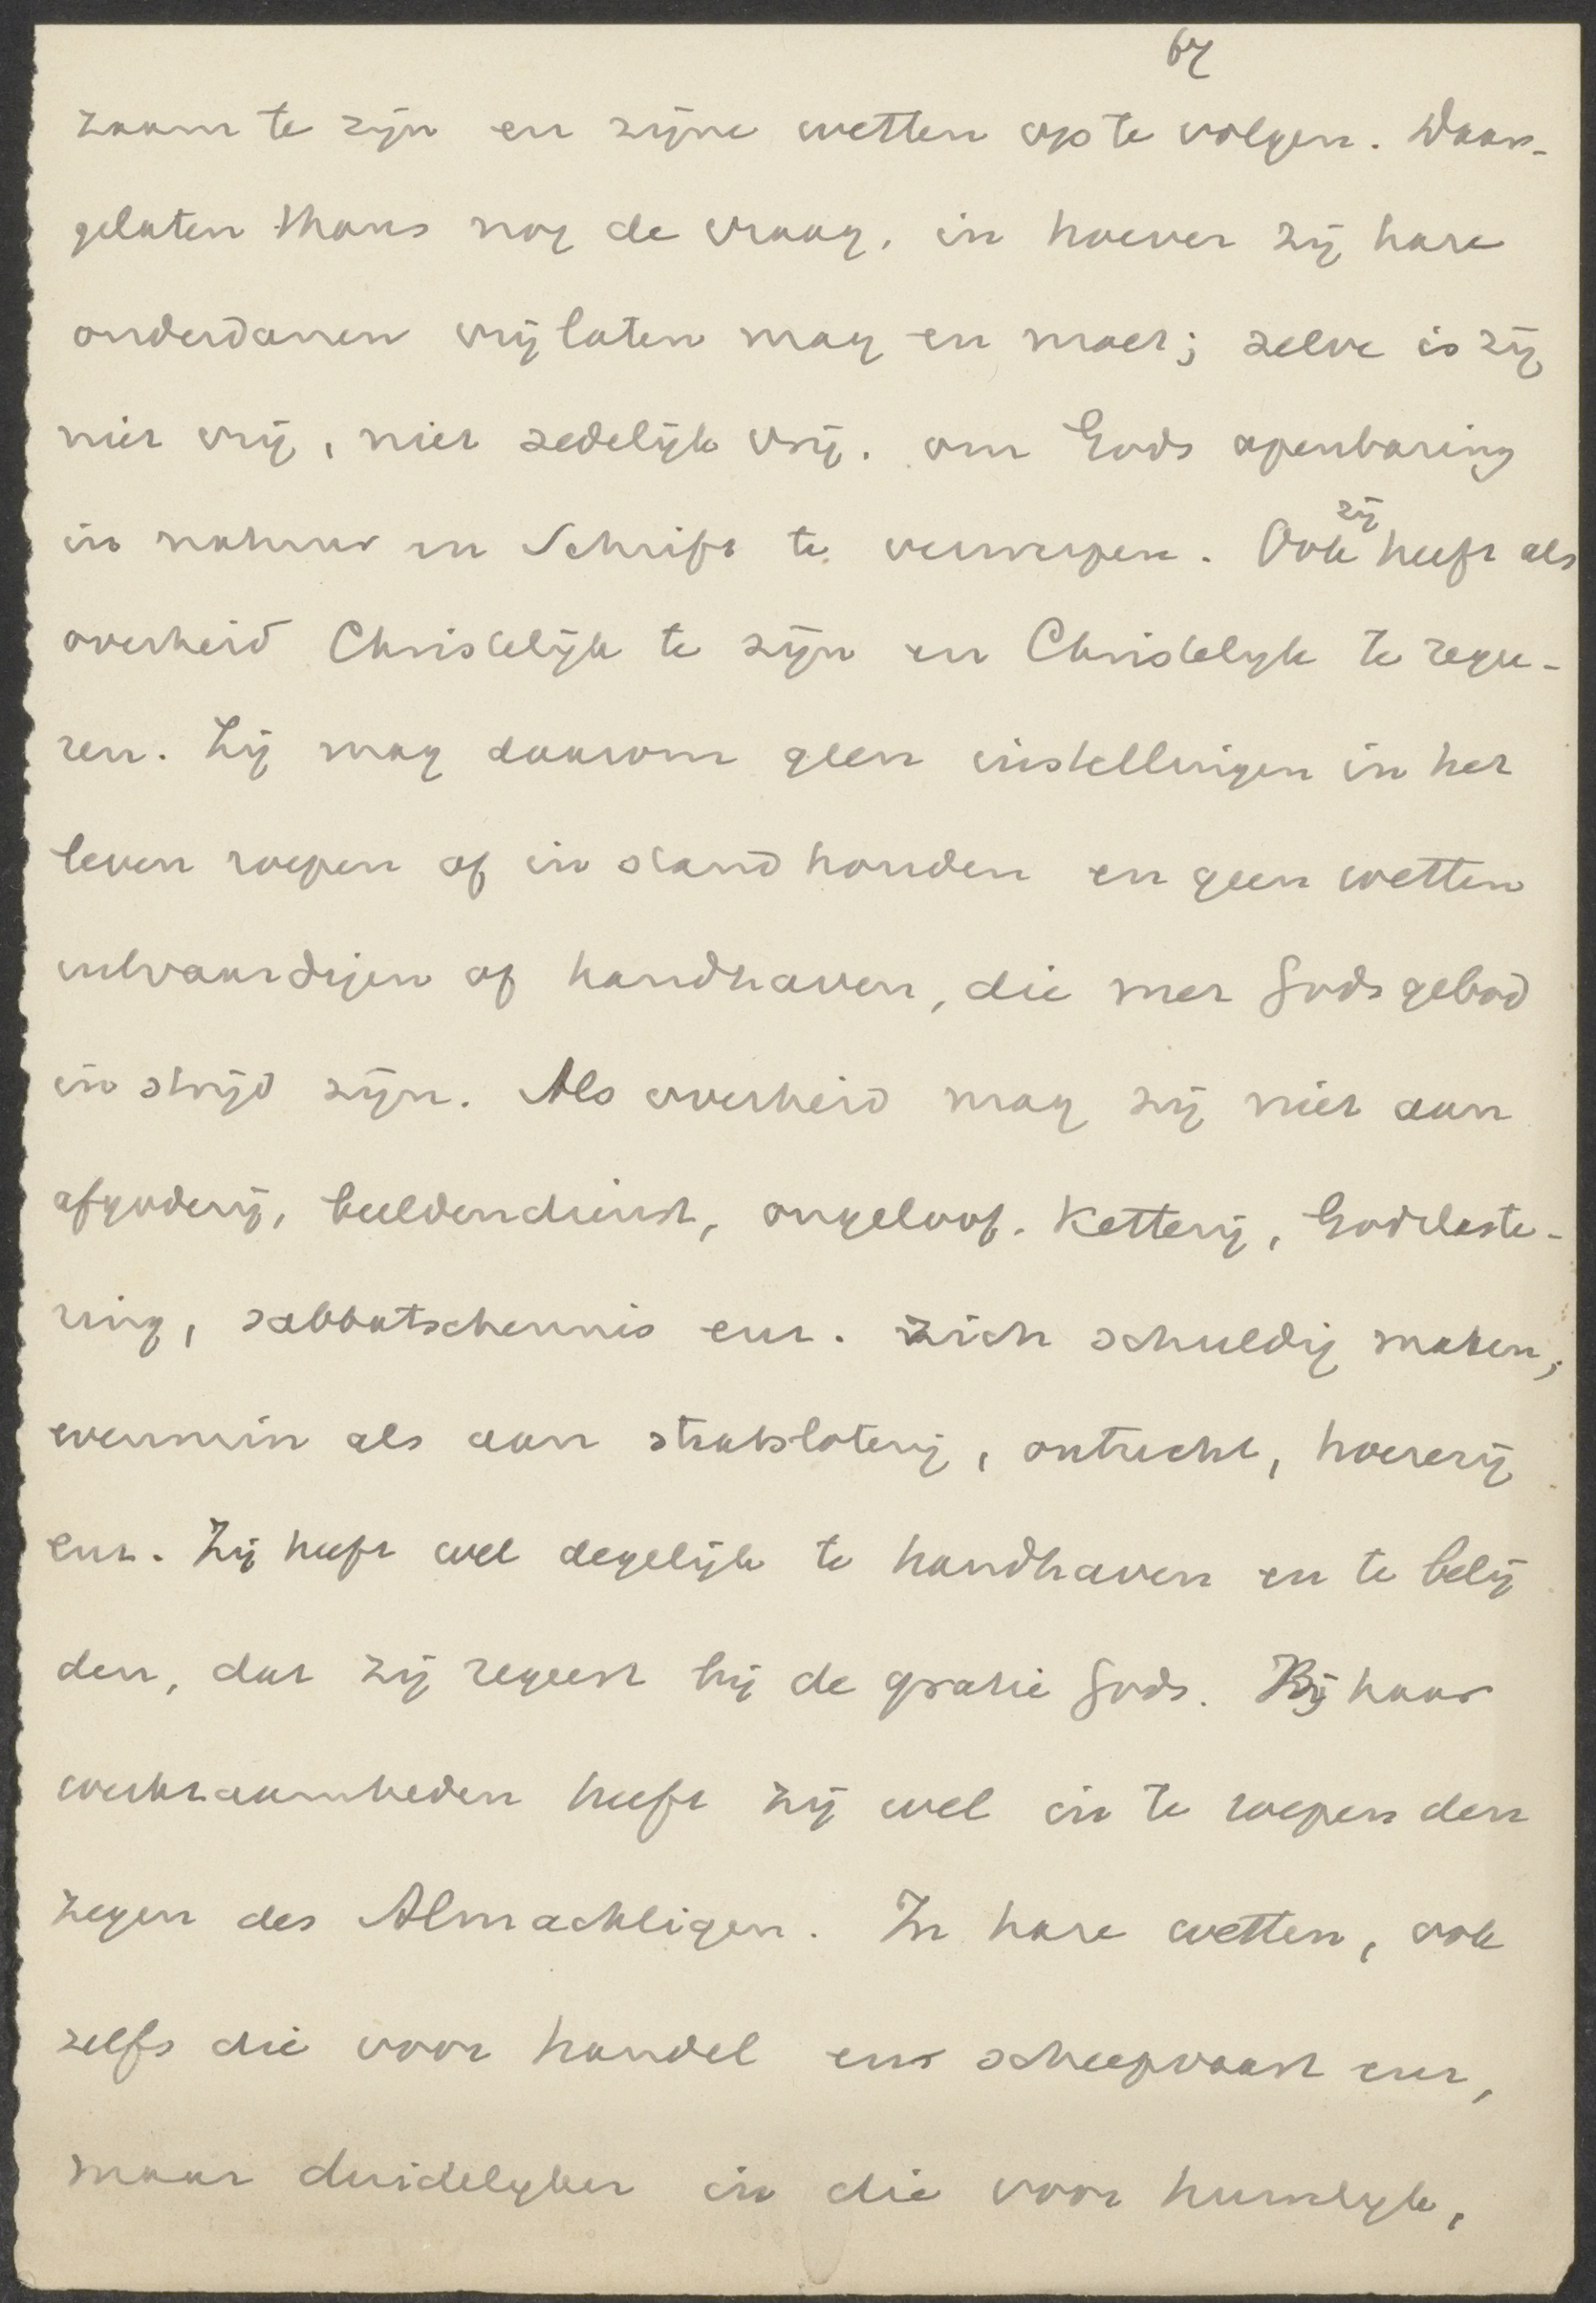 67
zaam te zijn en zijne wetten op te volgen. Daar-
gelaten thans nog de vraag, in hoever zij hare
onderdanen vrijlaten mag en moet; zelve is zij
niet vrij, niet zedelijk vrij, om Gods openbaring
in natuur en Schrift te verwerpen. Ook zij heeft als
overheid Christelijk te zijn en Christelijk te rege-
ren. Zij mag daarom geen instellingen in het
leven roepen of in stand houden en geen wetten
uitvaardigen of handhaven, die met Gods gebod
in strijd zijn. Als overheid mag zij niet aan
afgoderij, beeldendienst, ongeloof, ketterij, Godslaste-
ring, sabbatschennis enz. zich schuldig maken,
evenmin als aan staatsloterij, ontucht, hoererij
enz. Zij heeft wel degelijk te handhaven en te belij
den, dat zij regeert bij de gratie Gods. Bij haar
werkzaamheden heeft zij wel in te roepen den
zegen des Almachtigen. In hare wetten, ook
zelfs die voor handel en scheepvaart enz,
maar duidelijker in die voor huwelijk,